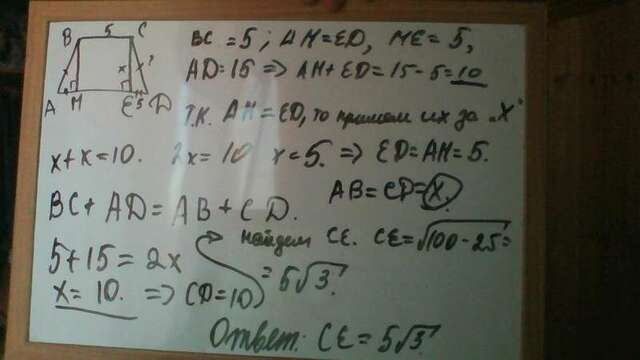 B 5 C
x ?
x
A M E 5 D
BC = 5; AM = ED, ME = 5,
AD = 15 => AM + ED = 15 - 5 = 10
т.к. AM = ED, то примем их за "x"
x + x = 10. 2x = 10 x = 5. => ED = AM = 5.
AB = CD = x.
BC + AD = AB + CD.
найдем CE. CE = √100 - 25 =
5 + 15 = 2x
= 5√3.
x = 10. => CD = 10
Ответ: CE = 5√3.